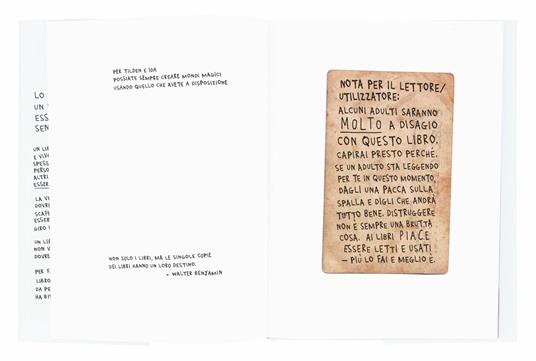 LO
UN
ESS
SEN
UN LIB
E VIV
SPESS
PERSO
ALTRI
ESSER
LA VI
DOVRE
SCAF
ESSER
GIRO
UN LI
NON V
DOVRE
PER F
LIBRO
DA PE
HA BIS
PER TILDEN E IDA
POSSIATE SEMPRE CREARE MONDI MAGICI
USANDO QUELLO CHE AVETE A DISPOSIZIONE
NON SOLO I LIBRI, MA LE SINGOLE COPIE
DEI LIBRI HANNO UN LORO DESTINO.
- WALTER BENJAMIN
NOTA PER IL LETTORE/
UTILIZZATORE:
ALCUNI ADULTI SARANNO
MOLTO A DISAGIO
CON QUESTO LIBRO.
CAPIRAI PRESTO PERCHÉ.
SE UN ADULTO STA LEGGENDO
PER TE IN QUESTO MOMENTO,
DAGLI UNA PACCA SULLA
SPALLA E DIGLI CHE ANDRÀ
TUTTO BENE. DISTRUGGERE
NON È SEMPRE UNA BRUTTA
COSA. AI LIBRI PIACE
ESSERE LETTI E USATI
— PIÙ LO FAI E MEGLIO È.